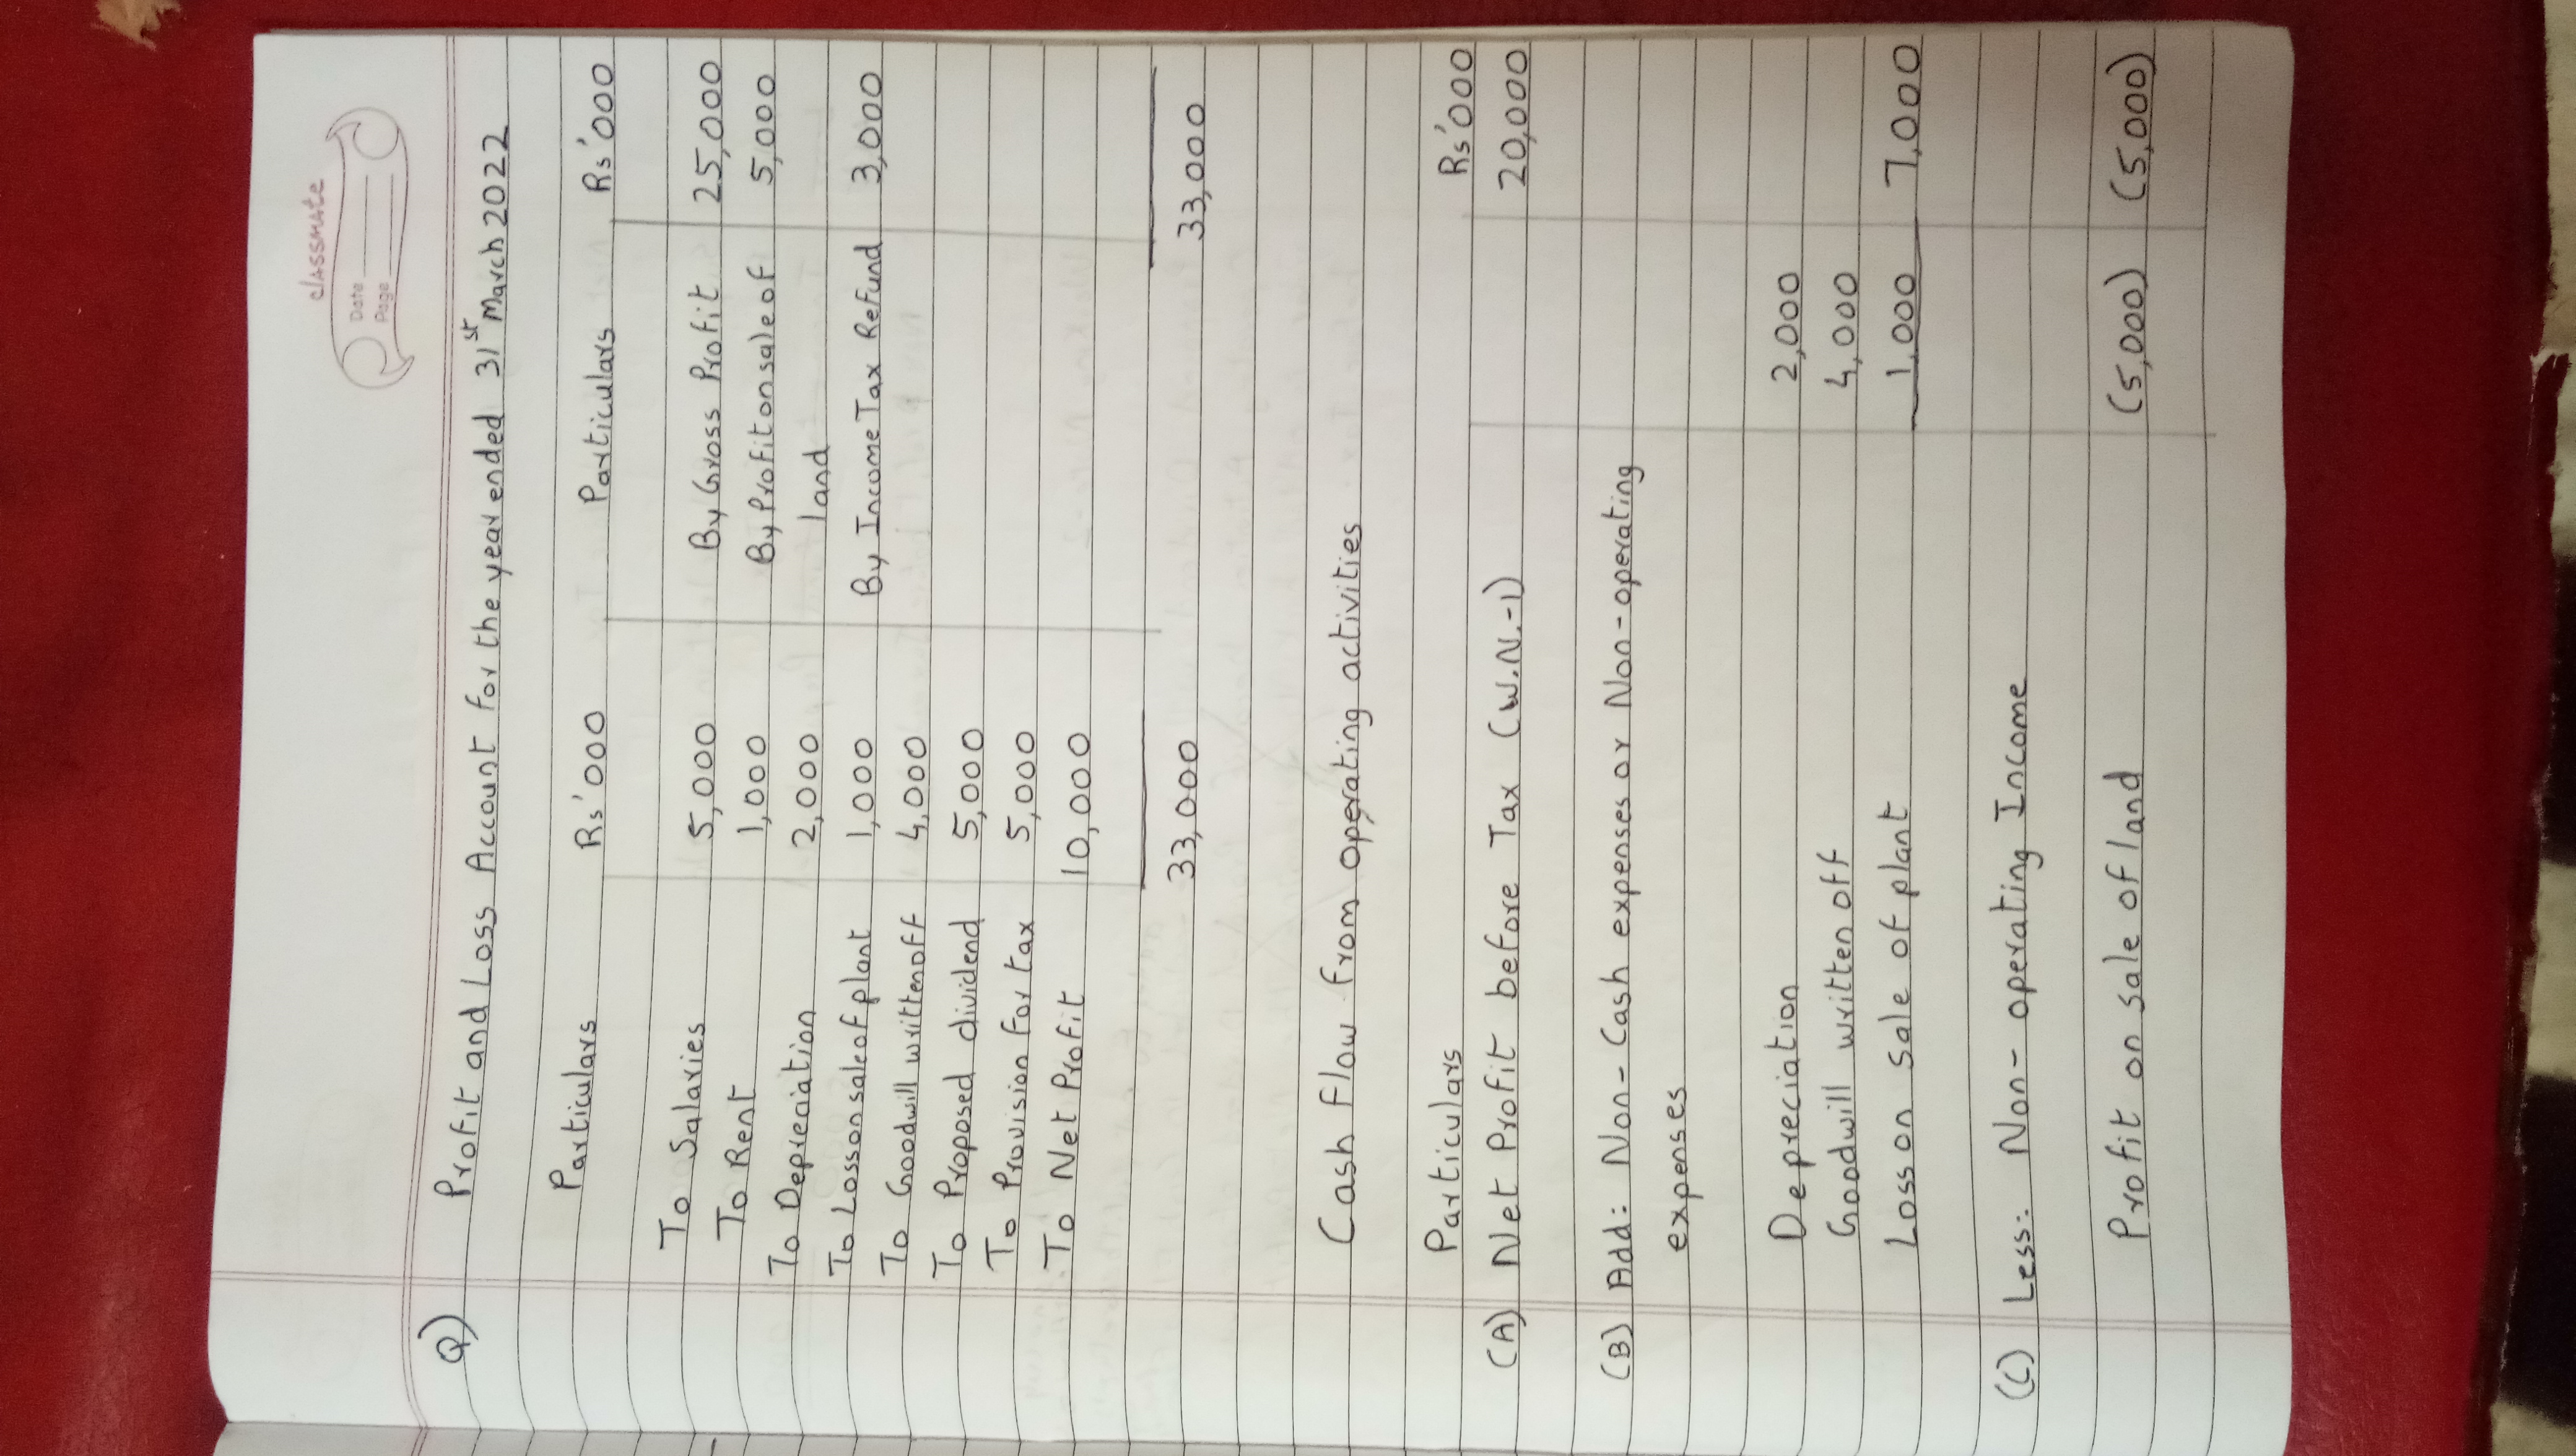 classmate
Date
Page
Q) Profit and Loss Account for the year ended 31st March 2022
Particulars Rs'000 Particulars Rs'000
To Salaries 5,000 By Gross Profit 25,000
To Rent 1,000 By Profit on sale of 5,000
To Depreciation 2,000 land
To Loss on sale of plant 1,000 By Income Tax Refund 3,000
To Goodwill written off 4,000
To Proposed dividend 5,000
To Provision for tax 5,000
To Net Profit 10,000
33,000 33,000
Cash flow from operating activities
Particulars Rs'000
(A) Net Profit before Tax (W.N.-1) 20,000
(B) Add: Non-Cash expenses or Non-operating
expenses
Depreciation 2,000
Goodwill written off 4,000
Loss on sale of plant 1,000 7,000
(C) Less: Non-operating Income
Profit on sale of land (5,000) (5,000)